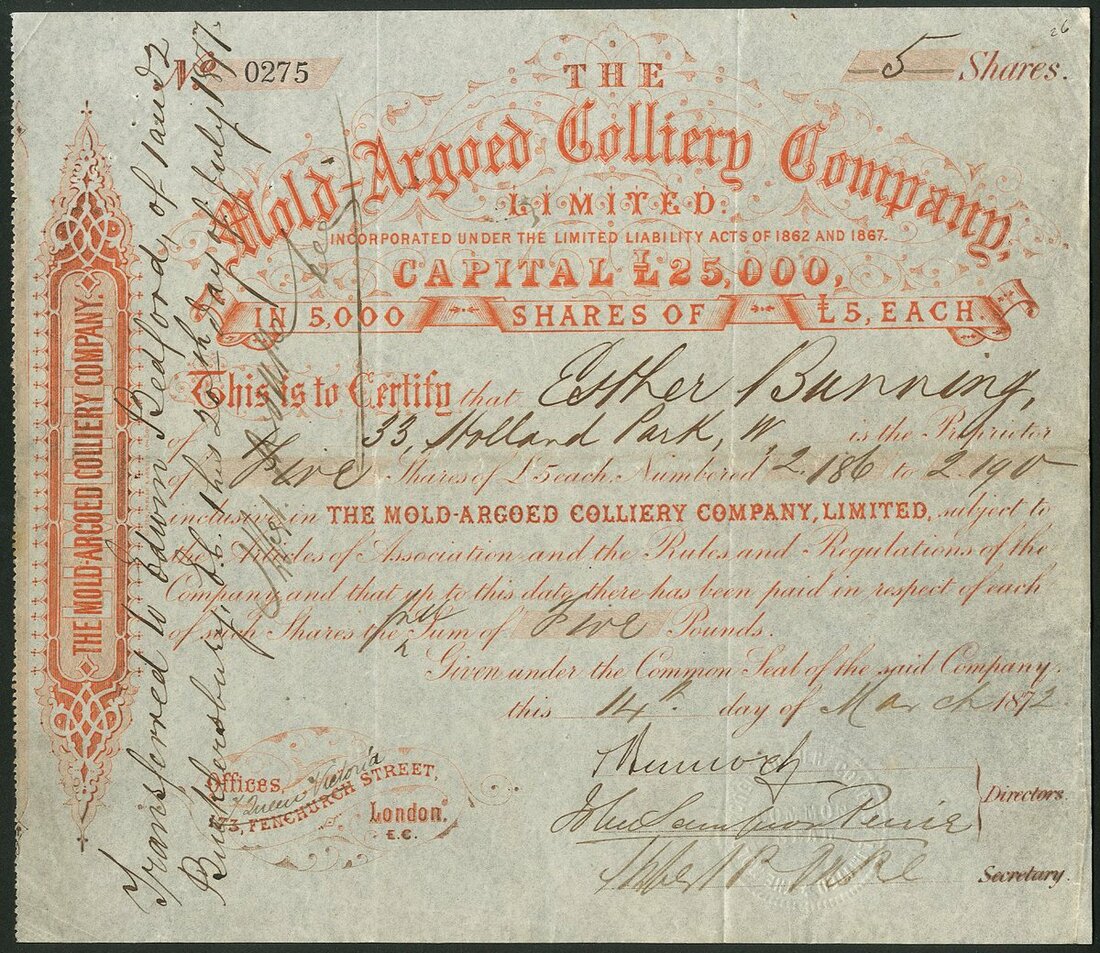 No. 0275
5 Shares.
26
THE
Mold-Argoed Colliery Company,
LIMITED.
INCORPORATED UNDER THE LIMITED LIABILITY ACTS OF 1862 AND 1867.
CAPITAL £25,000,
IN 5,000 SHARES OF £5, EACH.
This is to Certify that Esther Bunning,
of 33, Holland Park, W, is the Proprietor
of Five Shares of £5 each. Numbered 2.186 to 2.190
inclusive in THE MOLD-ARGOED COLLIERY COMPANY, LIMITED, subject to
the Articles of Association and the Rules and Regulations of the
Company and that up to this date there has been paid in respect of each
of such Shares the full Sum of Five Pounds.
Given under the Common Seal of the said Company.
this 14th. day of March 1872.
Directors.
Secretary.
Offices,
Queen Victoria
73, FENCHURCH STREET,
London.
E.C.
THE MOLD-ARGOED COLLIERY COMPANY.
Transferred to Edwin Bedford, of 1 and 2
Bucklersbury, E.C. this 26th day of July 1877.